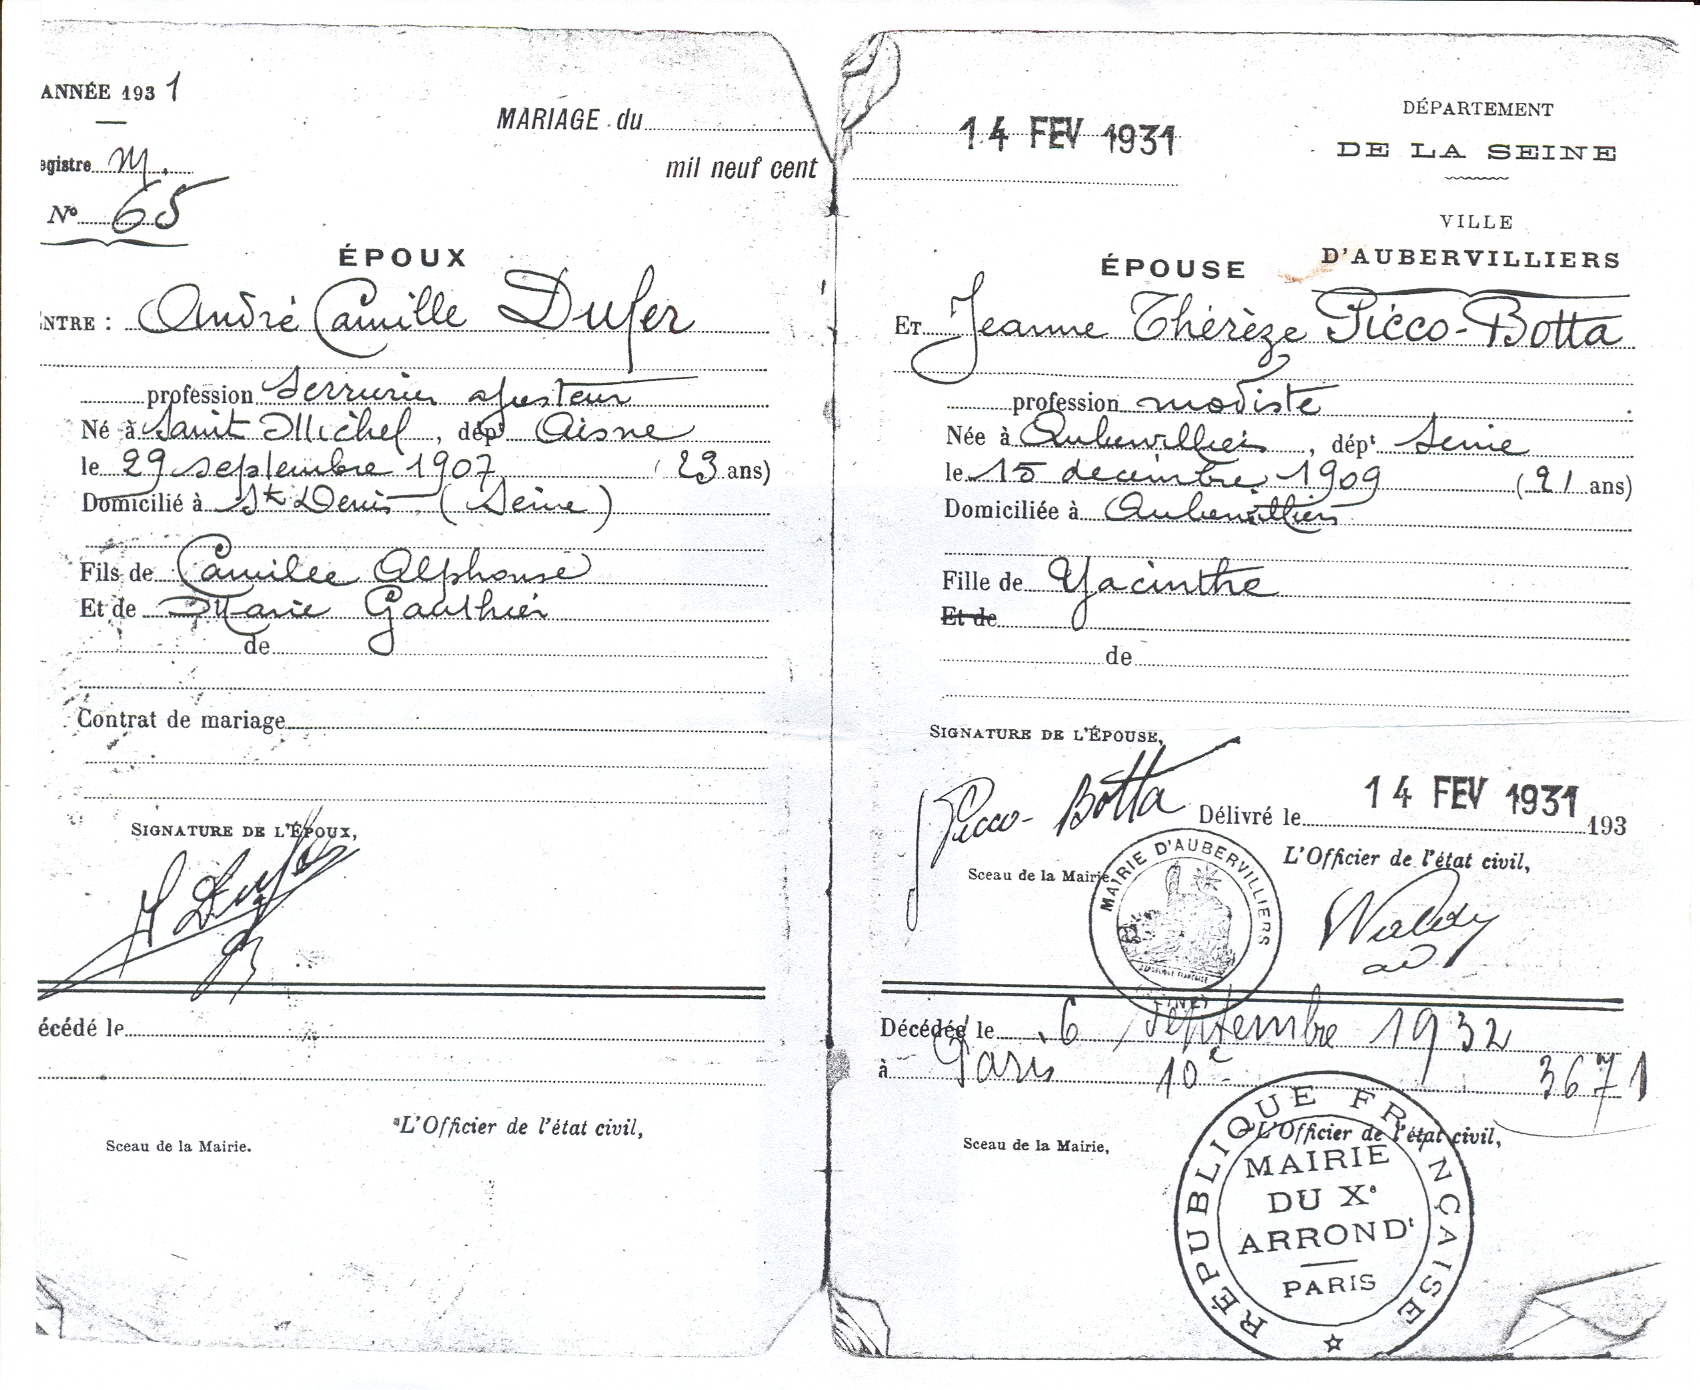 ANNÉE 1931
egistre M.
N° 65
MARIAGE du
mil neuf cent
ÉPOUX
NTRE : André Camille Dufer
profession Serrurier ajusteur
Né à Saint Michel, dépt Aisne
le 29 septembre 1907 (23 ans)
Domicilié à St Denis (Seine)
Fils de Camille Alphonse
Et de Marie Gauthier
de
Contrat de mariage
SIGNATURE DE L'ÉPOUX,
Dufer
écédé le
L'Officier de l'état civil,
Sceau de la Mairie.
14 FEV 1931
DÉPARTEMENT
DE LA SEINE
VILLE
D'AUBERVILLIERS
ÉPOUSE
ET Jeanne Thérèze Picco-Botta
profession modiste
Née à Aubervilliers, dépt Seine
le 15 decembre 1909 (21 ans)
Domiciliée à Aubervilliers
Fille de Yacinthe
Et de
de
SIGNATURE DE L'ÉPOUSE,
J Picco-Botta
14 FEV 1931
Délivré le 193
L'Officier de l'état civil,
Sceau de la Mairie,
MAIRIE D'AUBERVILLIERS
(SEINE)
Décédée le 6 Septembre 1932
à Paris 10e 3671
L'Officier de l'état civil,
Sceau de la Mairie,
RÉPUBLIQUE FRANÇAISE
MAIRIE
DU Xe
ARRONDt
PARIS